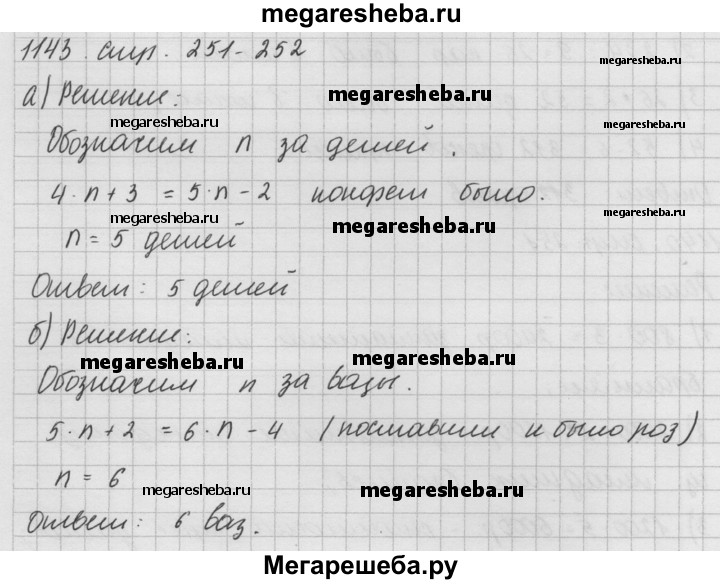 megaresheba.ru
1143. стр. 251-252
megaresheba.ru
а) Решение:
megaresheba.ru
megaresheba.ru
megaresheba.ru
Обозначим n за детей.
4·n+3 = 5·n-2 конфет было.
megaresheba.ru
megaresheba.ru
megaresheba.ru
n = 5 детей
Ответ: 5 детей
б) Решение:
megaresheba.ru
megaresheba.ru
megaresheba.ru
Обозначим n за вазы.
5·n+2 = 6·n-4 (поставили и было роз)
n = 6
megaresheba.ru
megaresheba.ru
megaresheba.ru
Ответ: 6 ваз.
Мегарешеба.ру